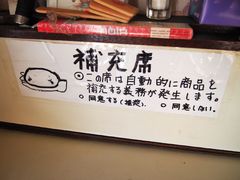 補充席
⦿この席は自動的に商品を
補充する義務が発生します。
○同意する(推奨). ○同意しない.